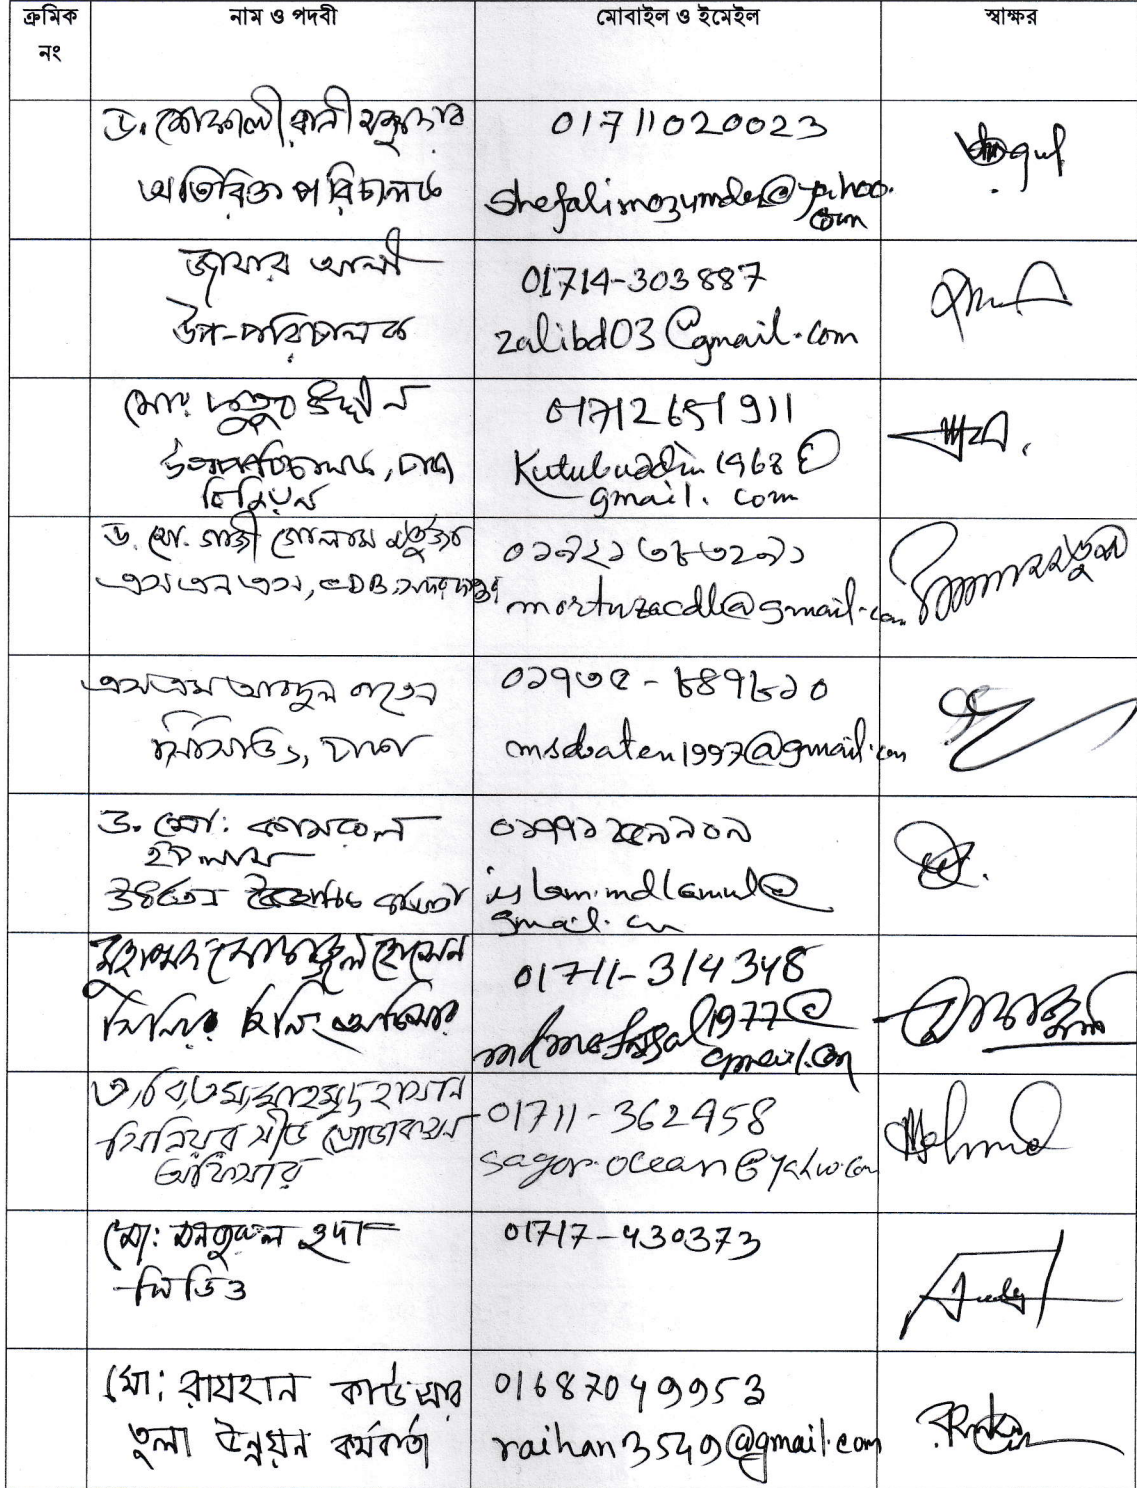 ক্রমিক নং
নাম ও পদবী
মোবাইল ও ইমেইল
স্বাক্ষর
ড. শেফালী রানী মজুমদার
অতিরিক্ত পরিচালক
01711020023
shefalimozumder@yahoo.
com
জাফার আলী
উপ-পরিচালক
01714-303887
zalibd03@gmail.com
মোঃ কুতুব উদ্দীন
উপপরিচালক, ঢাকা
01712651911
Kutubuddin1968@
gmail.com
ড. মো. গাজী গোলাম মর্তুজা
এস এস ও, CDB, সদর দপ্তর
০১৭২১৩৮৩২৭১
mortuzacdb@gmail.com
এস এম আবদুল বাতেন
সিসিডিও, ঢাকা
০১৭৩৫-৮৪৭৮১০
msdbaten1997@gmail.com
ড. মো: কামরুল
ইসলাম
ঊর্ধ্বতন বৈজ্ঞানিক কর্মকর্তা
islam.mdkamrul@
gmail.com
মুহাম্মদ মোফাজ্জল হোসেন
সিনিয়র জিনিং অফিসার
01711-314348
mdmofazzal1977@
gmail.com
এ,বি,এম,মাহমুদ হাসান
সিনিয়র সীড প্রোডাকশন
অফিসার
01711-362958
sagor.ocean@yahoo.com
Mahmud
মো: মনজুরুল হুদা
সিডিও
01717-430373
মো: রায়হান কাউসার
তুলা উন্নয়ন কর্মকর্তা
01687049953
raihan3549@gmail.com